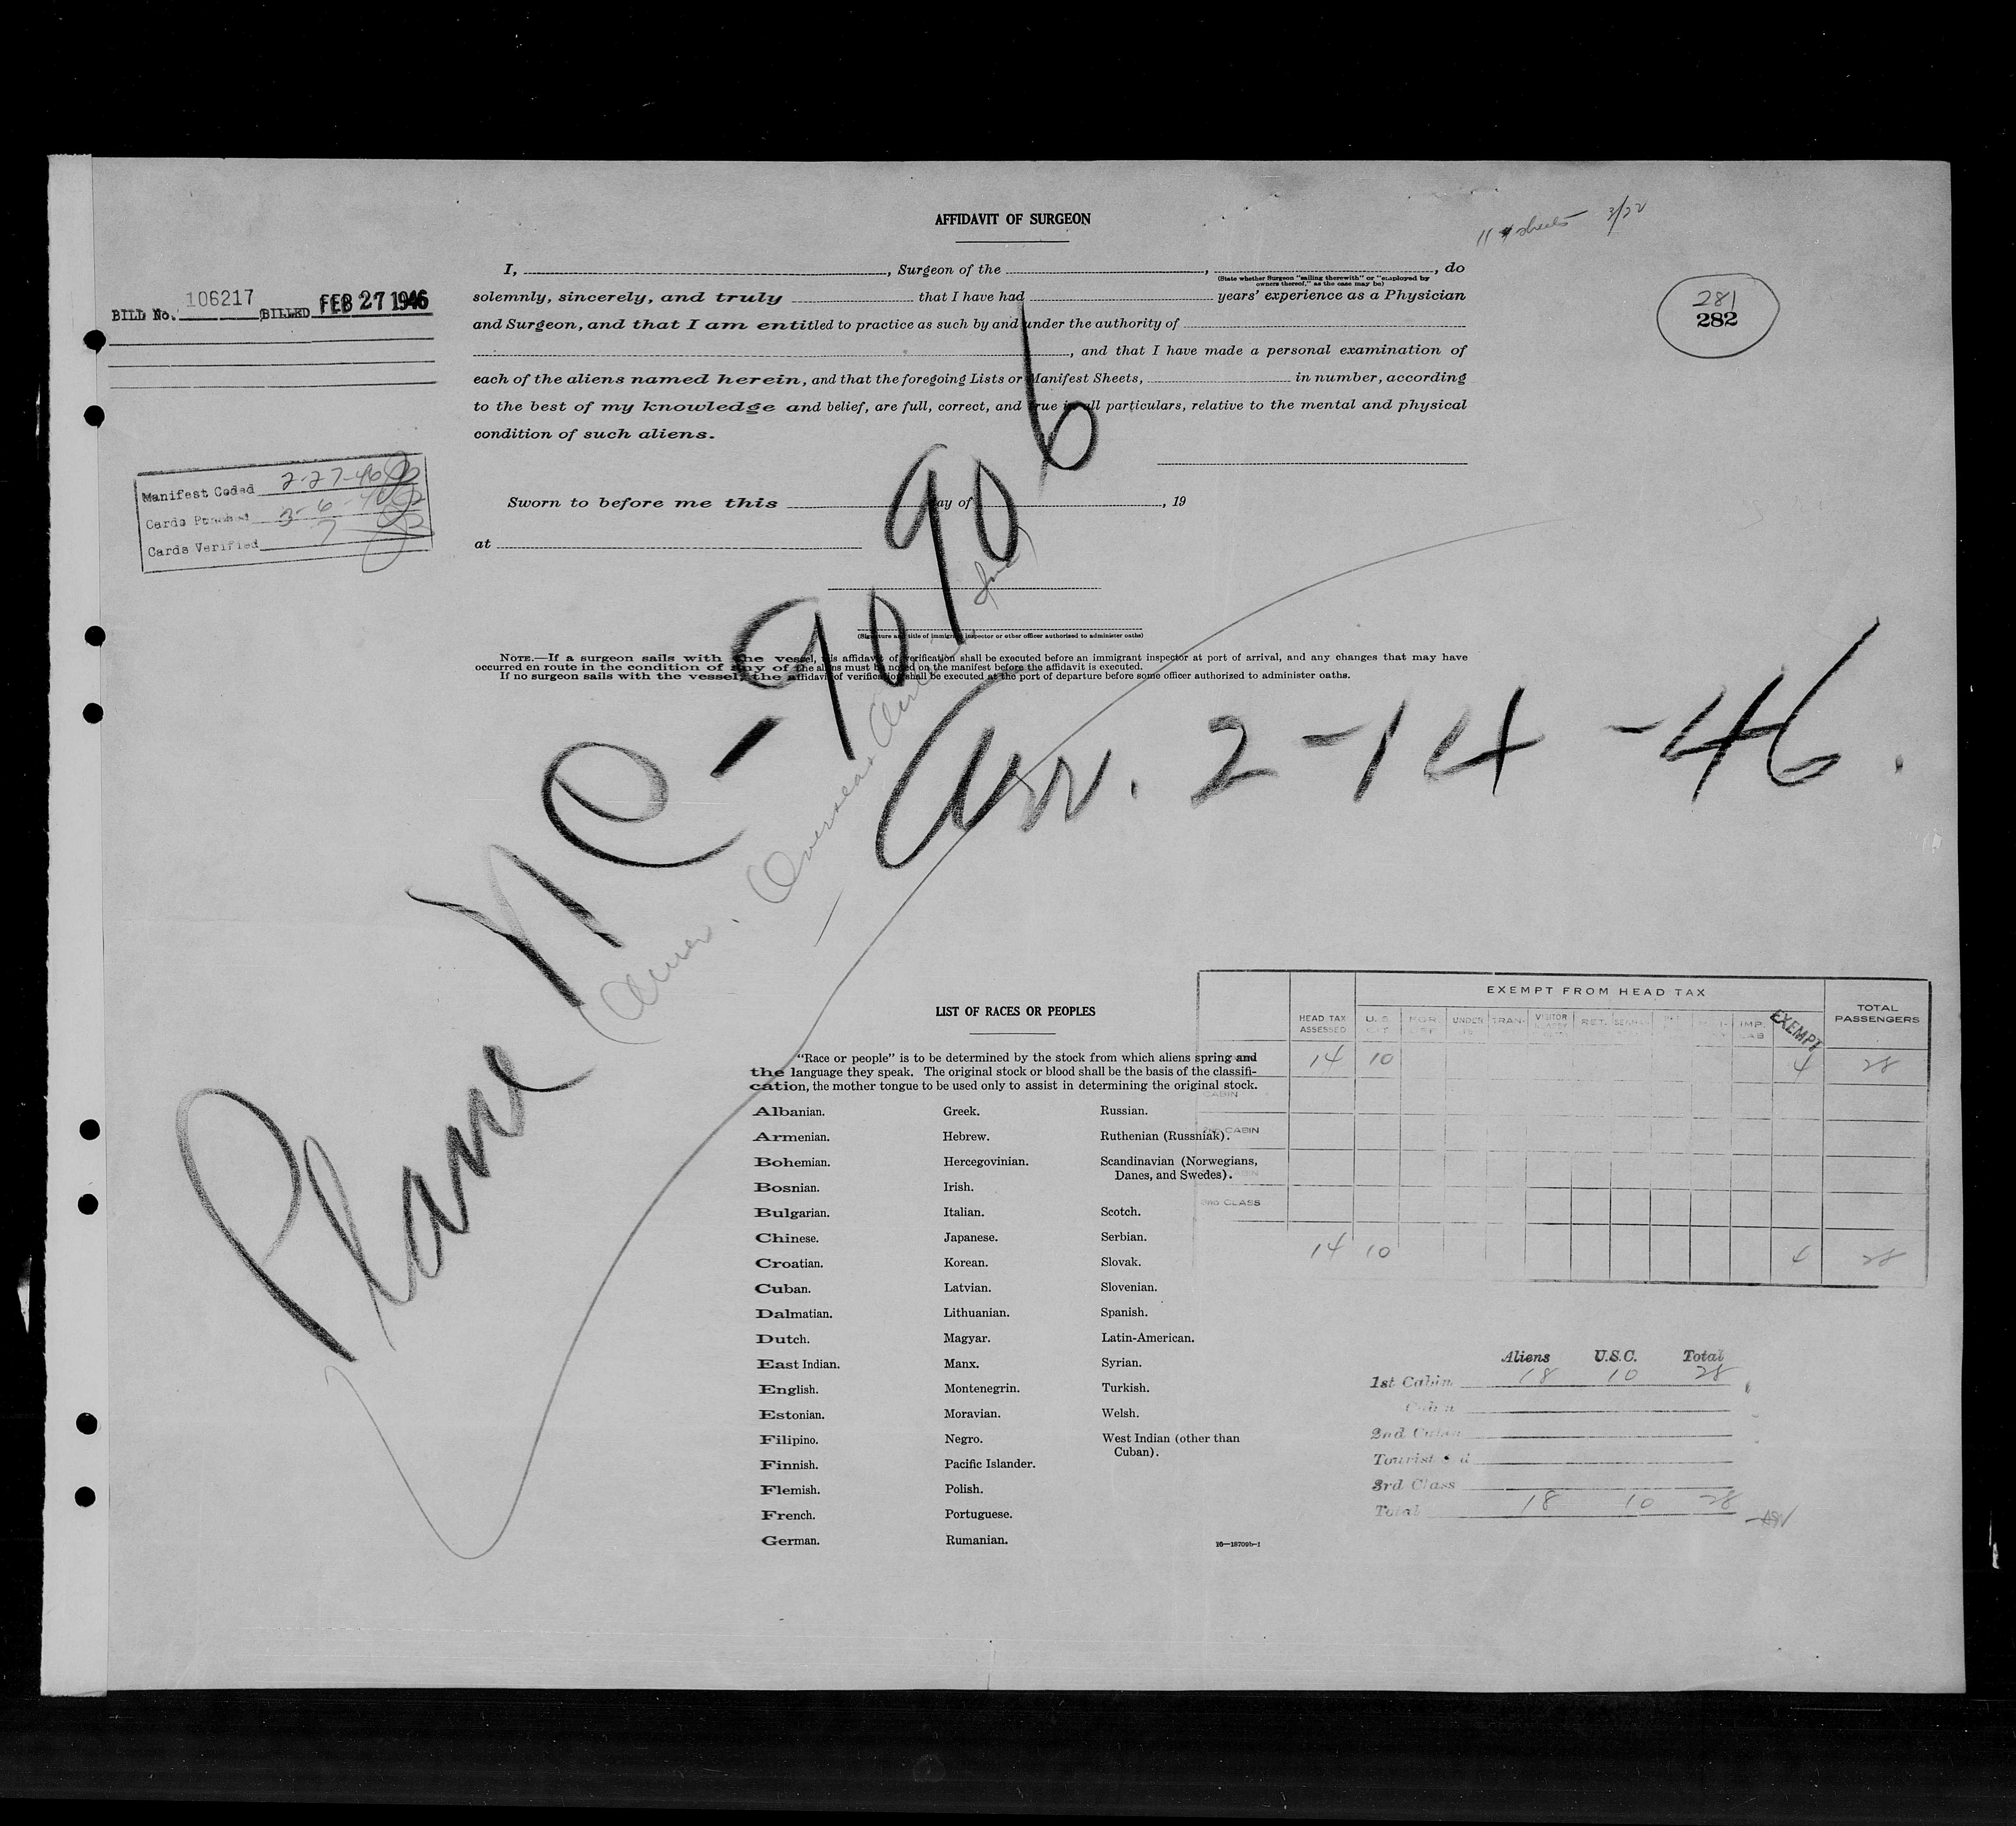 AFFIDAVIT OF SURGEON
sheets 3/22
I, , Surgeon of the , , do
(State whether Surgeon "sailing therewith" or "employed by
owners thereof," as the case may be)
solemnly, sincerely, and truly that I have had years' experience as a Physician
and Surgeon, and that I am entitled to practice as such by and under the authority of
, and that I have made a personal examination of
each of the aliens named herein, and that the foregoing Lists or Manifest Sheets, in number, according
to the best of my knowledge and belief, are full, correct, and true in all particulars, relative to the mental and physical
condition of such aliens.
BILL No. 106217 BILLED FEB 27 1946
281
282
Manifest Coded 2-27-46
Cards Punched 3-6-46
Cards Verified 7
Sworn to before me this day of , 19
at
(Signature and title of immigrant inspector or other officer authorized to administer oaths)
NOTE.—If a surgeon sails with the vessel, this affidavit of verification shall be executed before an immigrant inspector at port of arrival, and any changes that may have
occurred en route in the condition of any of the aliens must be noted on the manifest before the affidavit is executed.
If no surgeon sails with the vessel, the affidavit of verification shall be executed at the port of departure before some officer authorized to administer oaths.
Plane NC-90906
Amer. Overseas
Arr. 2-14-46.
LIST OF RACES OR PEOPLES
"Race or people" is to be determined by the stock from which aliens spring and
the language they speak. The original stock or blood shall be the basis of the classifi-
cation, the mother tongue to be used only to assist in determining the original stock.
Albanian.
Armenian.
Bohemian.
Bosnian.
Bulgarian.
Chinese.
Croatian.
Cuban.
Dalmatian.
Dutch.
East Indian.
English.
Estonian.
Filipino.
Finnish.
Flemish.
French.
German.
Greek.
Hebrew.
Hercegovinian.
Irish.
Italian.
Japanese.
Korean.
Latvian.
Lithuanian.
Magyar.
Manx.
Montenegrin.
Moravian.
Negro.
Pacific Islander.
Polish.
Portuguese.
Rumanian.
Russian.
Ruthenian (Russniak).
Scandinavian (Norwegians,
Danes, and Swedes).
Scotch.
Serbian.
Slovak.
Slovenian.
Spanish.
Latin-American.
Syrian.
Turkish.
Welsh.
West Indian (other than
Cuban).
16—18709b-1
EXEMPT FROM HEAD TAX
HEAD TAX ASSESSED U.S. CIT UNDER TRAN- VISITOR RET. IMP. LAB EXEMPT TOTAL PASSENGERS
14 10 4 28
CABIN
2ND CABIN
3RD CLASS
14 10 4 28
Aliens U.S.C. Total
1st Cabin 18 10 28
Cabin
2nd Cabin
Tourist 3rd
3rd Class
Total 18 10 28